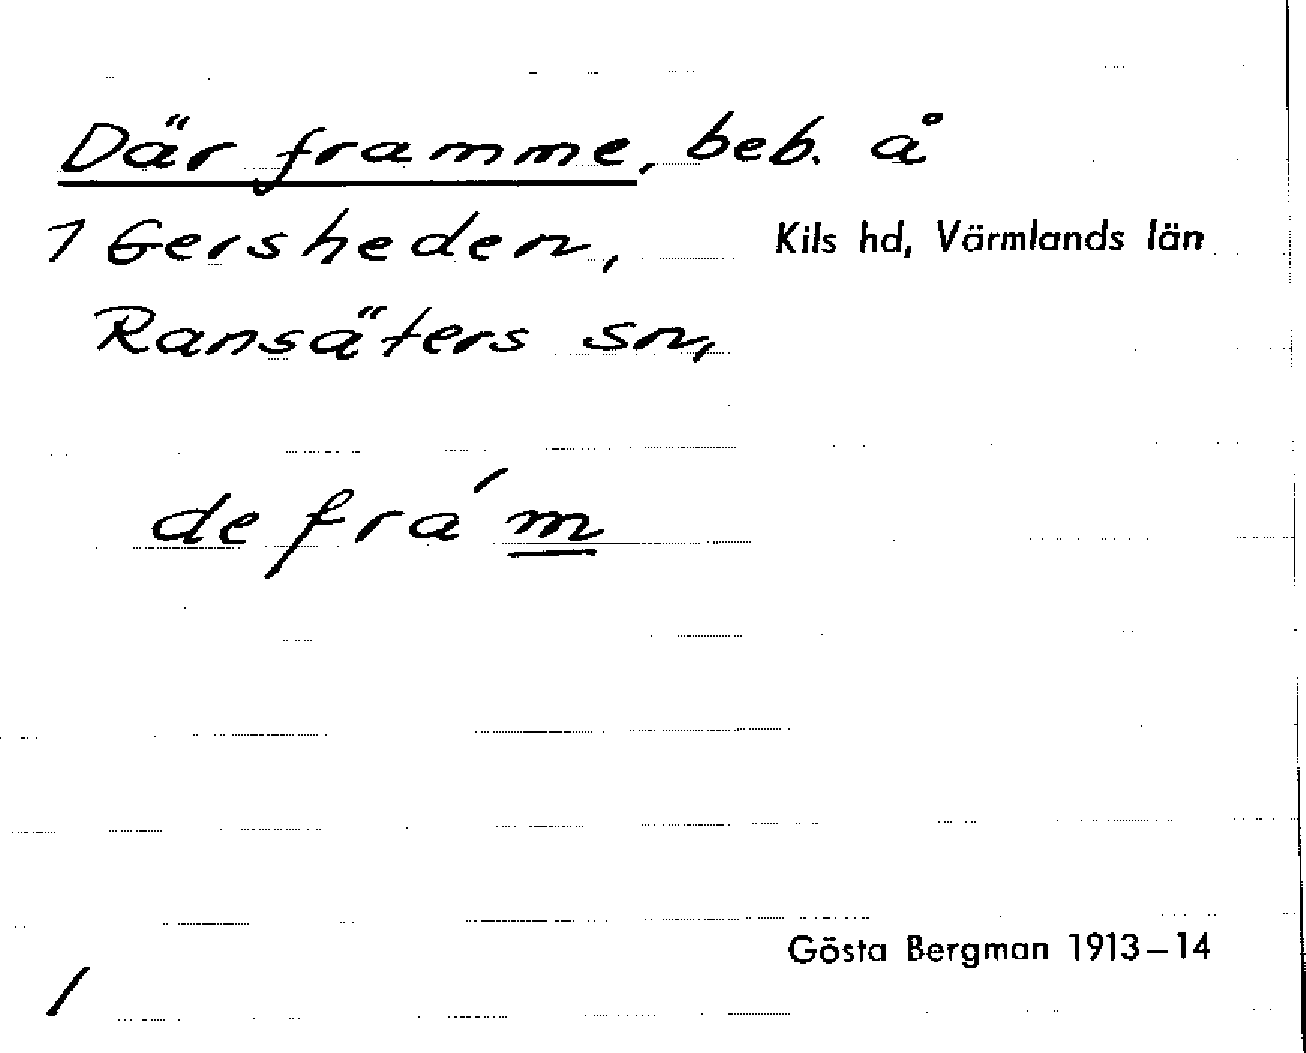 Där framme, beb. å
1 Gersheden, Kils hd, Värmlands län
Ransäters sn,
de fra´m
Gösta Bergman 1913–14
/